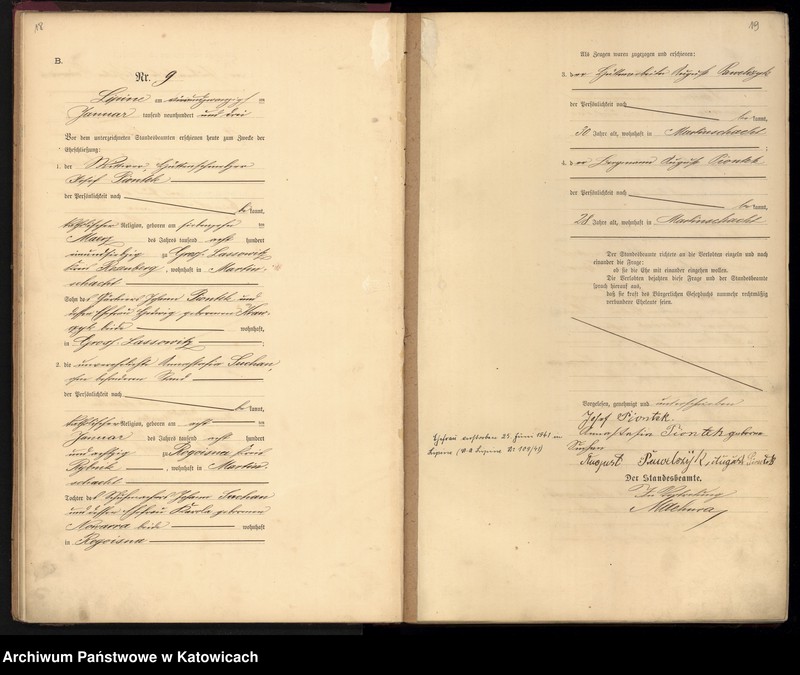 18
B.
Nr. 9
Lipine am vierundzwanzigsten
Januar tausend neunhundert und drei
Vor dem unterzeichneten Standesbeamten erschienen heute zum Zwecke der
Eheschließung:
1. der
Josef Piontek
der Persönlichkeit nach
be kannt,
katholischer Religion, geboren am siebzehnten
März des Jahres tausend acht hundert
zu Groß Lassowitz
Kreis Rosenberg, wohnhaft in Martin-
schacht
Sohn des Josef Piontek und
dessen Ehefrau Hedwig geborenen
beide wohnhaft,
in Gross Lassowitz ;
2. die unverehelichte Anastasia Suchan,
ohne besonderen Stand
der Persönlichkeit nach
be kannt,
katholischer Religion, geboren am acht
Januar des Jahres tausend acht hundert
und achtzig zu Rogoisna Kreis
Rybnik , wohnhaft in Martin-
schacht
Tochter des Johann Suchan
und dessen Ehefrau Karola geborenen
Nowarra beide wohnhaft
in Rogoisna
19
Als Zeugen waren zugezogen und erschienen:
3. der Hüttenarbeiter August Pawelczyk
der Persönlichkeit nach
be kannt,
30 Jahre alt, wohnhaft in Martinschacht
;
4. der Bergmann August Piontek
der Persönlichkeit nach
be kannt,
28 Jahre alt, wohnhaft in Martinschacht
Der Standesbeamte richtete an die Verlobten einzeln und nach
einander die Frage:
ob sie die Ehe mit einander eingehen wollen.
Die Verlobten bejahten diese Frage und der Standesbeamte
sprach hierauf aus,
daß sie kraft des Bürgerlichen Gesetzbuchs nunmehr rechtmäßig
verbundene Eheleute seien.
Vorgelesen, genehmigt und unterschrieben
Josef Piontek.
Anastasia Piontek geborne
Suchan
August Pawelczyk, August Piontek
Der Standesbeamte.
In Vertretung
Machura
Ehefrau verstorben 25. Juni 1941 in
Lipine (St. A. Lipine Nr. 109/41)
Archiwum Państwowe w Katowicach